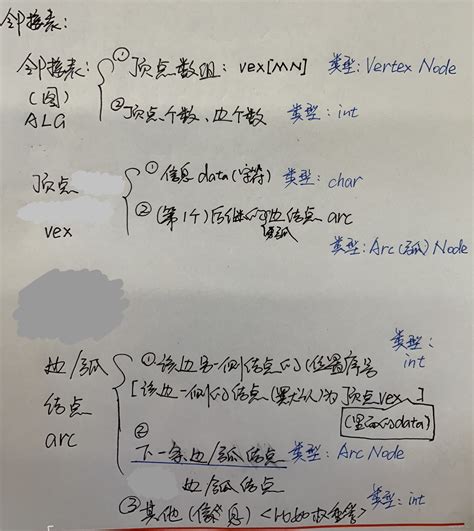 邻接表:
邻接表: ①顶点数组: vex[MN] 类型: Vertex Node
(图)
ALG ②顶点个数、边个数 类型: int
顶点 ①信息data(字符) 类型: char
vex ②(第1个)后继的 边结点 arc
类型: Arc(弧) Node
类型:
int
边/弧 ①该边另一侧结点的(位置序号
结点 [该边一侧的结点(默认)为顶点vex ]
arc (里面的data)
②
下一条边/弧结点 类型: Arc Node
边/弧结点
③其他(信息) <比如权重等> 类型: int